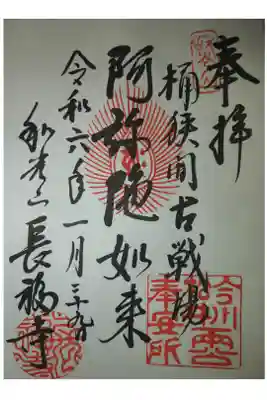 奉拝
桶狭間古戦場
阿弥陀如来
令和六年一月
和光山長福寺
奉安所